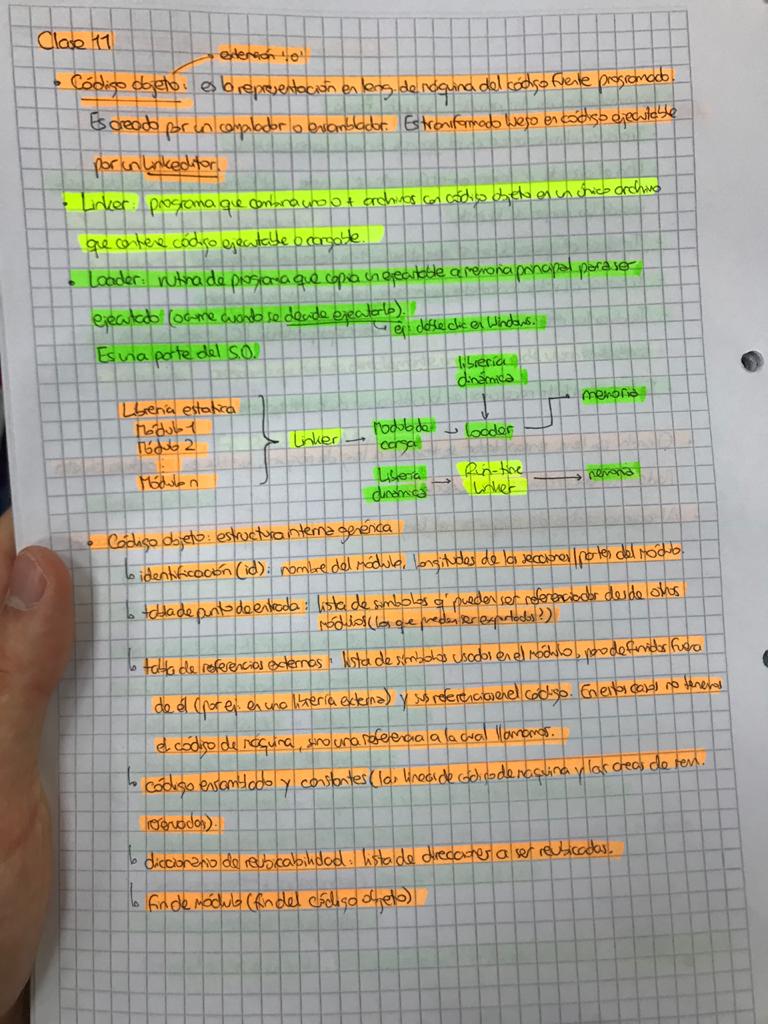 Clase 11
extensión '.o'
• Código objeto: es la representación en leng. de máquina del código fuente programado.
Es creado por un compilador o ensamblador. Es transformado luego en código ejecutable
por un linkeditor.
• Linker: programa que combina uno o + archivos con código objeto en un único archivo
que contiene código ejecutable o cargable.
• Loader: rutina de programa que copia un ejecutable a memoria principal para ser
ejecutado (ocurre cuando se decide ejecutarlo).
ej: doble clic en Windows.
Es una parte del S.O.
librería
dinámica
memoria
Librería estática
Módulo 1
Módulo 2
⋮
Módulo n
Linker → Módulo de
carga → loader
Librería
dinámica → Run-time
Linker → memoria
• Código objeto: estructura interna genérica
↳ identificación (id): nombre del módulo, longitudes de las secciones/partes del módulo.
↳ tabla de punto de entrada: lista de símbolos q' pueden ser referenciados desde otros
módulos (los que pueden ser exportados?)
↳ tabla de referencias externas: lista de símbolos usados en el módulo, pero definidos fuera
de él (por ej. en una librería externa) y sus referencias en el código. En estos casos no tenemos
el código de máquina, sino una referencia a la cual llamamos.
↳ código ensamblado y constantes (las líneas de código de máquina y las áreas de
reservadas).
↳ diccionario de reubicabilidad: lista de direcciones a ser reubicadas.
↳ fin de módulo (fin del código objeto)